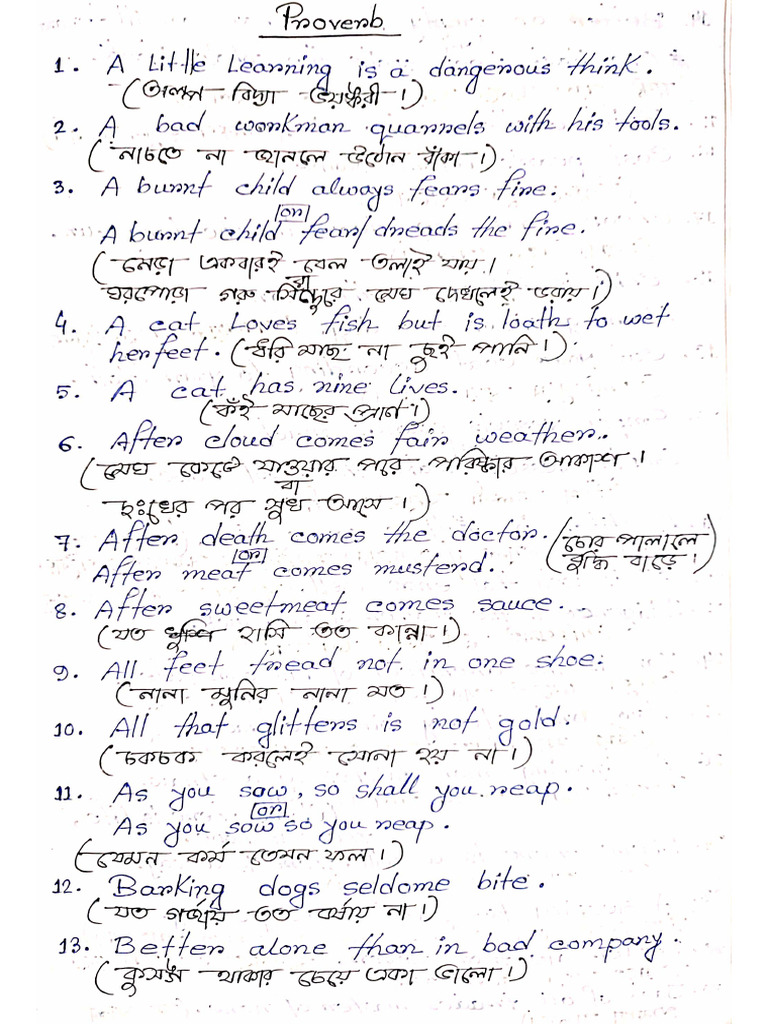 Proverb
1. A Little Learning is a dangerous think.
(অল্প বিদ্যা ভয়ঙ্করী।)
2. A bad workman quarrels with his tools.
(নাচতে না জানলে উঠোন বাঁকা।)
3. A burnt child always fears fire.
or
A burnt child fear/dreads the fire.
(নেড়া একবারই বেল তলাই যায়।
বা
ঘরপোড়া গরু সিঁদুরে মেঘ দেখলেই ডরায়।)
4. A cat Loves fish but is loath to wet
her feet. (ধরি মাছ না ছুই পানি।)
5. A cat has nine lives.
(কঁই মাছের প্রাণ।)
6. After cloud comes fair weather.
(মেঘ কেটে যাওয়ার পরে পরিষ্কার আকাশ।
বা
দুঃখের পর সুখ আসে।)
7. After death comes the doctor. (চোর পালালে
or
After meat comes musterd. বুদ্ধি বাড়ে)
8. After sweetmeat comes sauce.
(যত খুশি হাসি তত কান্না।)
9. All feet tread not in one shoe.
(নানা মুনির নানা মত।)
10. All that glitters is not gold.
(চকচক করলেই সোনা হয় না।)
11. As you saw, so shall you reap.
or
As you sow so you reap.
(যেমন কর্ম তেমন ফল।)
12. Barking dogs seldome bite.
(যত গর্জায় তত বর্ষায় না।)
13. Better alone than in bad company.
(কুসঙ্গ থাকার চেয়ে একা ভালো।)